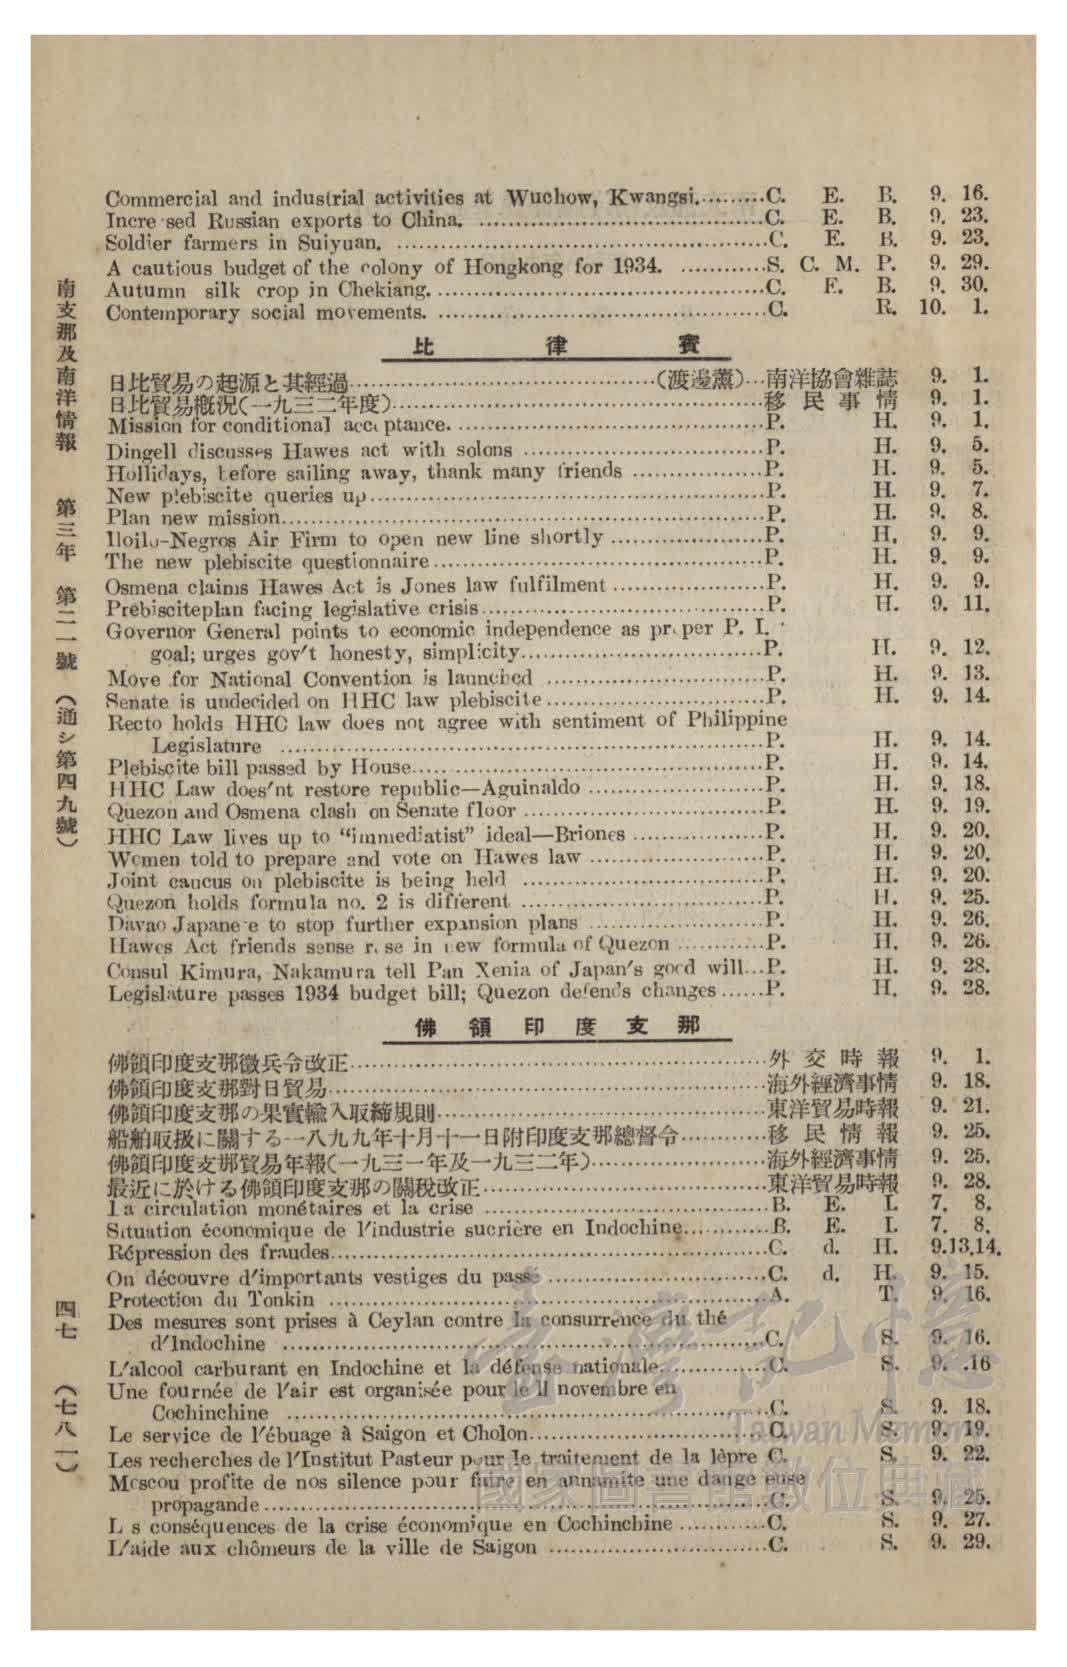 Commercial and industrial activities at Wuchow, Kwangsi..........C. E. B. 9. 16.
Incre sed Russian exports to China. ..........C. E. B. 9. 23.
Soldier farmers in Suiyuan. ..........C. E. B. 9. 23.
A cautious budget of the colony of Hongkong for 1934. ..........S. C. M. P. 9. 29.
Autumn silk crop in Chekiang...........C. E. B. 9. 30.
Contemporary social movements. ..........C. R. 10. 1.
比律賓
日比貿易の起源と其經過..........(渡邊薰)...南洋協會雜誌 9. 1.
日比貿易槪況(一九三二年度)..........移民事情 9. 1.
Mission for conditional acceptance...........P. H. 9. 1.
Dingell discusses Hawes act with solons ..........P. H. 9. 5.
Hollidays, before sailing away, thank many friends ..........P. H. 9. 5.
New plebiscite queries up..........P. H. 9. 7.
Plan new mission..........P. H. 9. 8.
Iloilo-Negros Air Firm to open new line shortly ..........P. H. 9. 9.
The new plebiscite questionnaire..........P. H. 9. 9.
Osmena claims Hawes Act is Jones law fulfilment ..........P. H. 9. 9.
Prebisciteplan facing legislative crisis..........P. H. 9. 11.
Governor General points to economic independence as proper P. I.
goal; urges gov't honesty, simplicity..........P. H. 9. 12.
Move for National Convention is launched ..........P. H. 9. 13.
Senate is undecided on HHC law plebiscite..........P. H. 9. 14.
Recto holds HHC law does not agree with sentiment of Philippine
Legislature ..........P. H. 9. 14.
Plebiscite bill passed by House..........P. H. 9. 14.
HHC Law does'nt restore republic—Aguinaldo ..........P. H. 9. 18.
Quezon and Osmena clash on Senate floor ..........P. H. 9. 19.
HHC Law lives up to “immediatist” ideal—Briones ..........P. H. 9. 20.
Women told to prepare and vote on Hawes law ..........P. H. 9. 20.
Joint caucus on plebiscite is being held ..........P. H. 9. 20.
Quezon holds formula no. 2 is different ..........P. H. 9. 25.
Davao Japane e to stop further expansion plans ..........P. H. 9. 26.
Hawes Act friends sense ruse in new formula of Quezon ..........P. H. 9. 26.
Consul Kimura, Nakamura tell Pan Xenia of Japan's good will...P. H. 9. 28.
Legislature passes 1934 budget bill; Quezon defends changes......P. H. 9. 28.
佛領印度支那
佛領印度支那徵兵令改正..........外交時報 9. 1.
佛領印度支那對日貿易..........海外經濟事情 9. 18.
佛領印度支那の果實輸入取締規則..........東洋貿易時報 9. 21.
船舶取扱に關する一八九九年十月十一日附印度支那總督令..........移民情報 9. 25.
佛領印度支那貿易年報(一九三一年及一九三二年)..........海外經濟事情 9. 25.
最近に於ける佛領印度支那の關稅改正..........東洋貿易時報 9. 28.
La circulation monétaires et la crise ..........B. E. I. 7. 8.
Situation économique de l'industrie sucrière en Indochine..........B. E. I. 7. 8.
Répression des fraudes..........C. d. H. 9.13.14.
On découvre d'importants vestiges du passé ..........C. d. H. 9. 15.
Protection du Tonkin ..........A. T. 9. 16.
Des mesures sont prises à Ceylan contre la consurrence du thé
d'Indochine ..........C. S. 9. 16.
L'alcool carburant en Indochine et la défense nationale..........C. S. 9. .16
Une fournée de l'air est organisée pour le 11 novembre en
Cochinchine ..........C. S. 9. 18.
Le service de l'ébuage à Saigon et Cholon..........C. S. 9. 19.
Les recherches de l'Institut Pasteur pour le traitement de la lèpre C. S. 9. 22.
Moscou profite de nos silence pour faire en annamite une dange euse
propagande..........C. S. 9. 25.
L s conséquences de la crise économique en Cochinchine ..........C. S. 9. 27.
L'aide aux chômeurs de la ville de Saigon ..........C. S. 9. 29.
南支那及南洋情報 第三年 第二一號 (通シ第四九號) 四七 (七八一)
臺灣記憶
Taiwan Memory
國家圖書館數位典藏